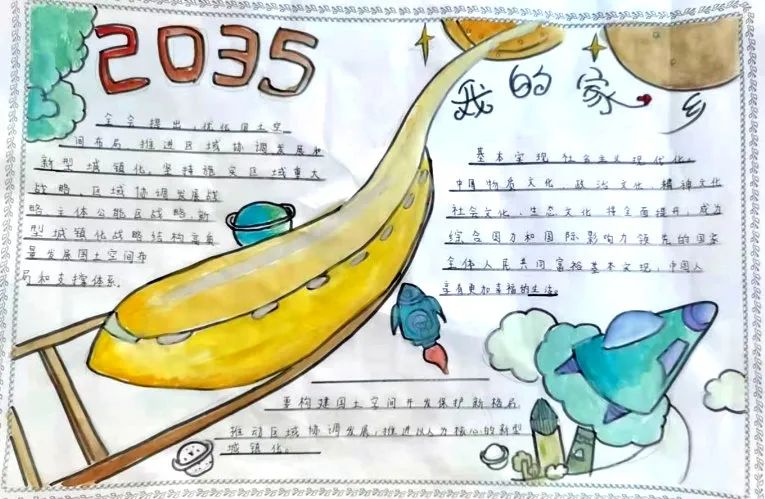 2035
我的家乡
全会提出，优化国土空
间布局，推进区域协调发展和
新型城镇化。坚持施实区域重大
战略、区域协调发展战
略、主体公能区战略，新
型城镇化战略结构高质
量发展国土空间布
局和支撑体系.
基本实现社会主义现代化。
中国物质文化、政治文化、精神文化
社会文化、生态文化将全面提升，成为
综合国力和国际影响力领先的国家
全体人民共同富裕基本实现，中国人
享有更加幸福的生活。
要构建国土空间开发保护新格局
推动区域协调发展，推进以人为核心的新型
城镇化。